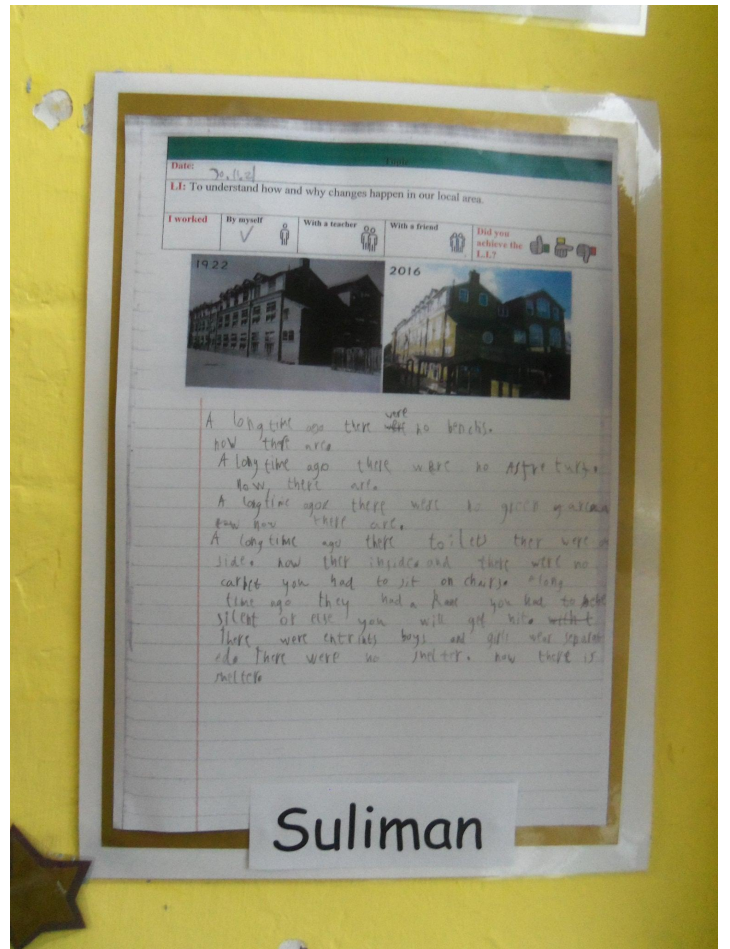 Topic
Date:
LI: To understand how and why changes happen in our local area.
I worked
By myself
With a teacher
With a friend
Did you
achieve the
L.I.?
1922
2016
were
A long time ago there no benchs.
now there are.
A long time ago there were no turf.
now there are.
A long time agoe there were no green
now there are.
A long time ago there toilets ther were
side. now ther inside and there were no
carpet you had to sit on chairs. A long
time ago they had a you had to
silent or else you will get hit.
There were entrints boys and girls wear separat
ed. There were no shelter. now there is
shelter.
Suliman